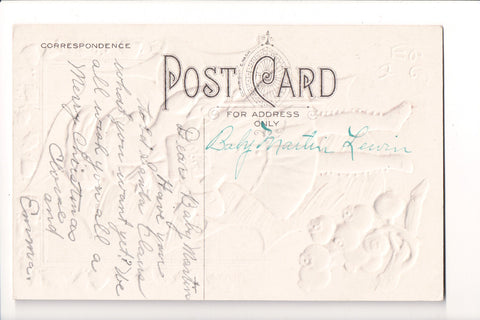 CORRESPONDENCE
POST CARD
FOR ADDRESS
ONLY
Baby Martin Lewin
Dear Baby Martin
Have you
told Santa Claus
what you want yet? We
all wish you all a
Merry Christmas
and
Emma.